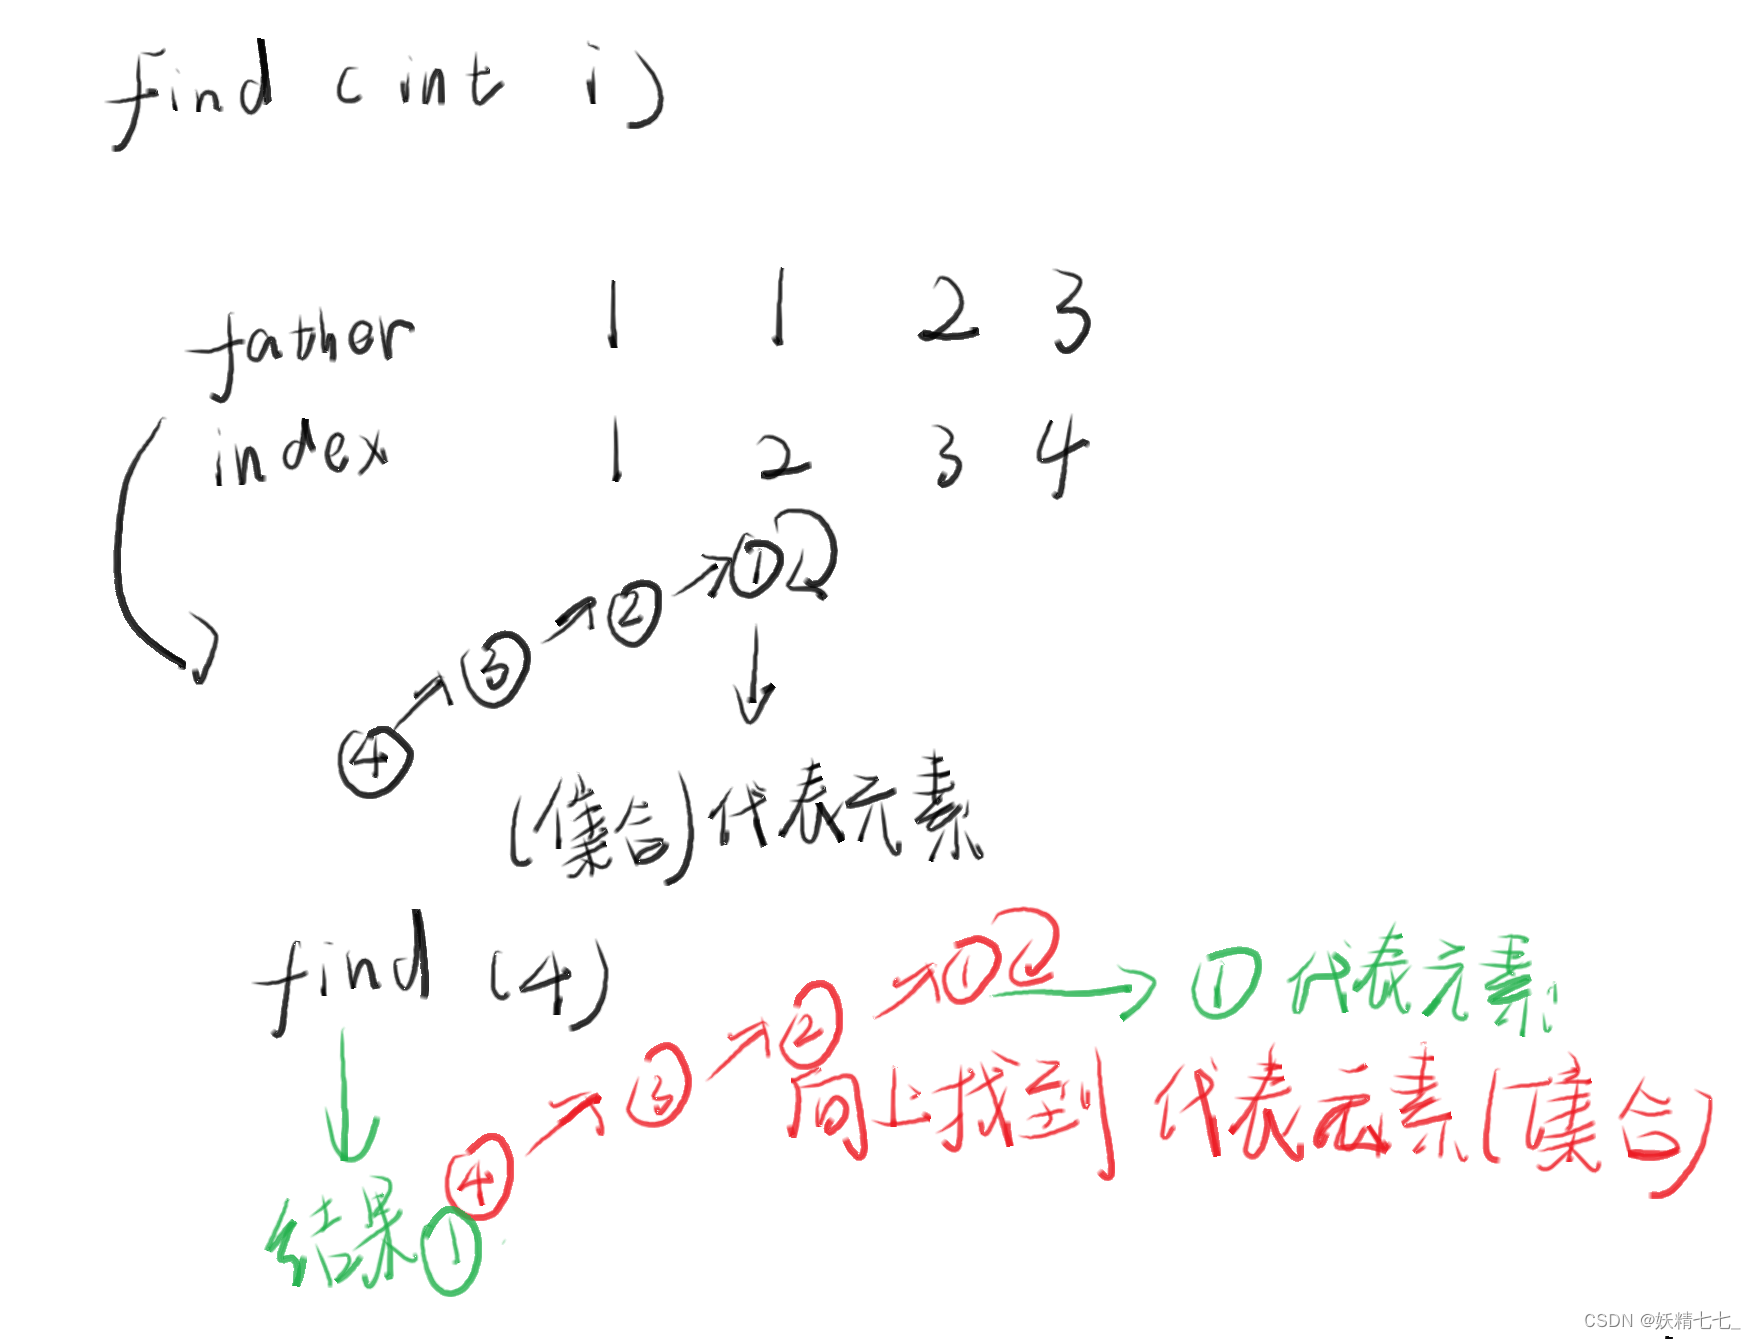 find (int i)
father 1 1 2 3
index 1 2 3 4
④ → ③ → ② → ①
(集合)代表元素
find (4)
④ → ③ → ② → ① → ① 代表元素
向上找到 代表元素(集合)
结果 ①
CSDN @妖精七七_